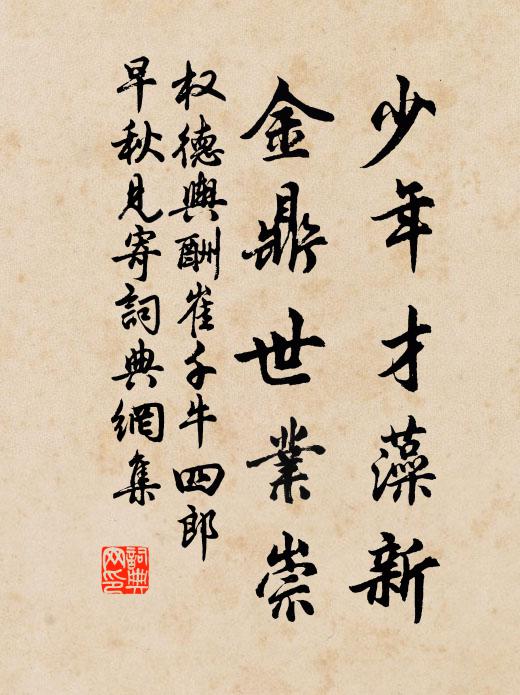 少年才藻新
金鼎世業崇
权德輿酬崔千牛四郎
早秋見寄詞典網集
詞典
网印